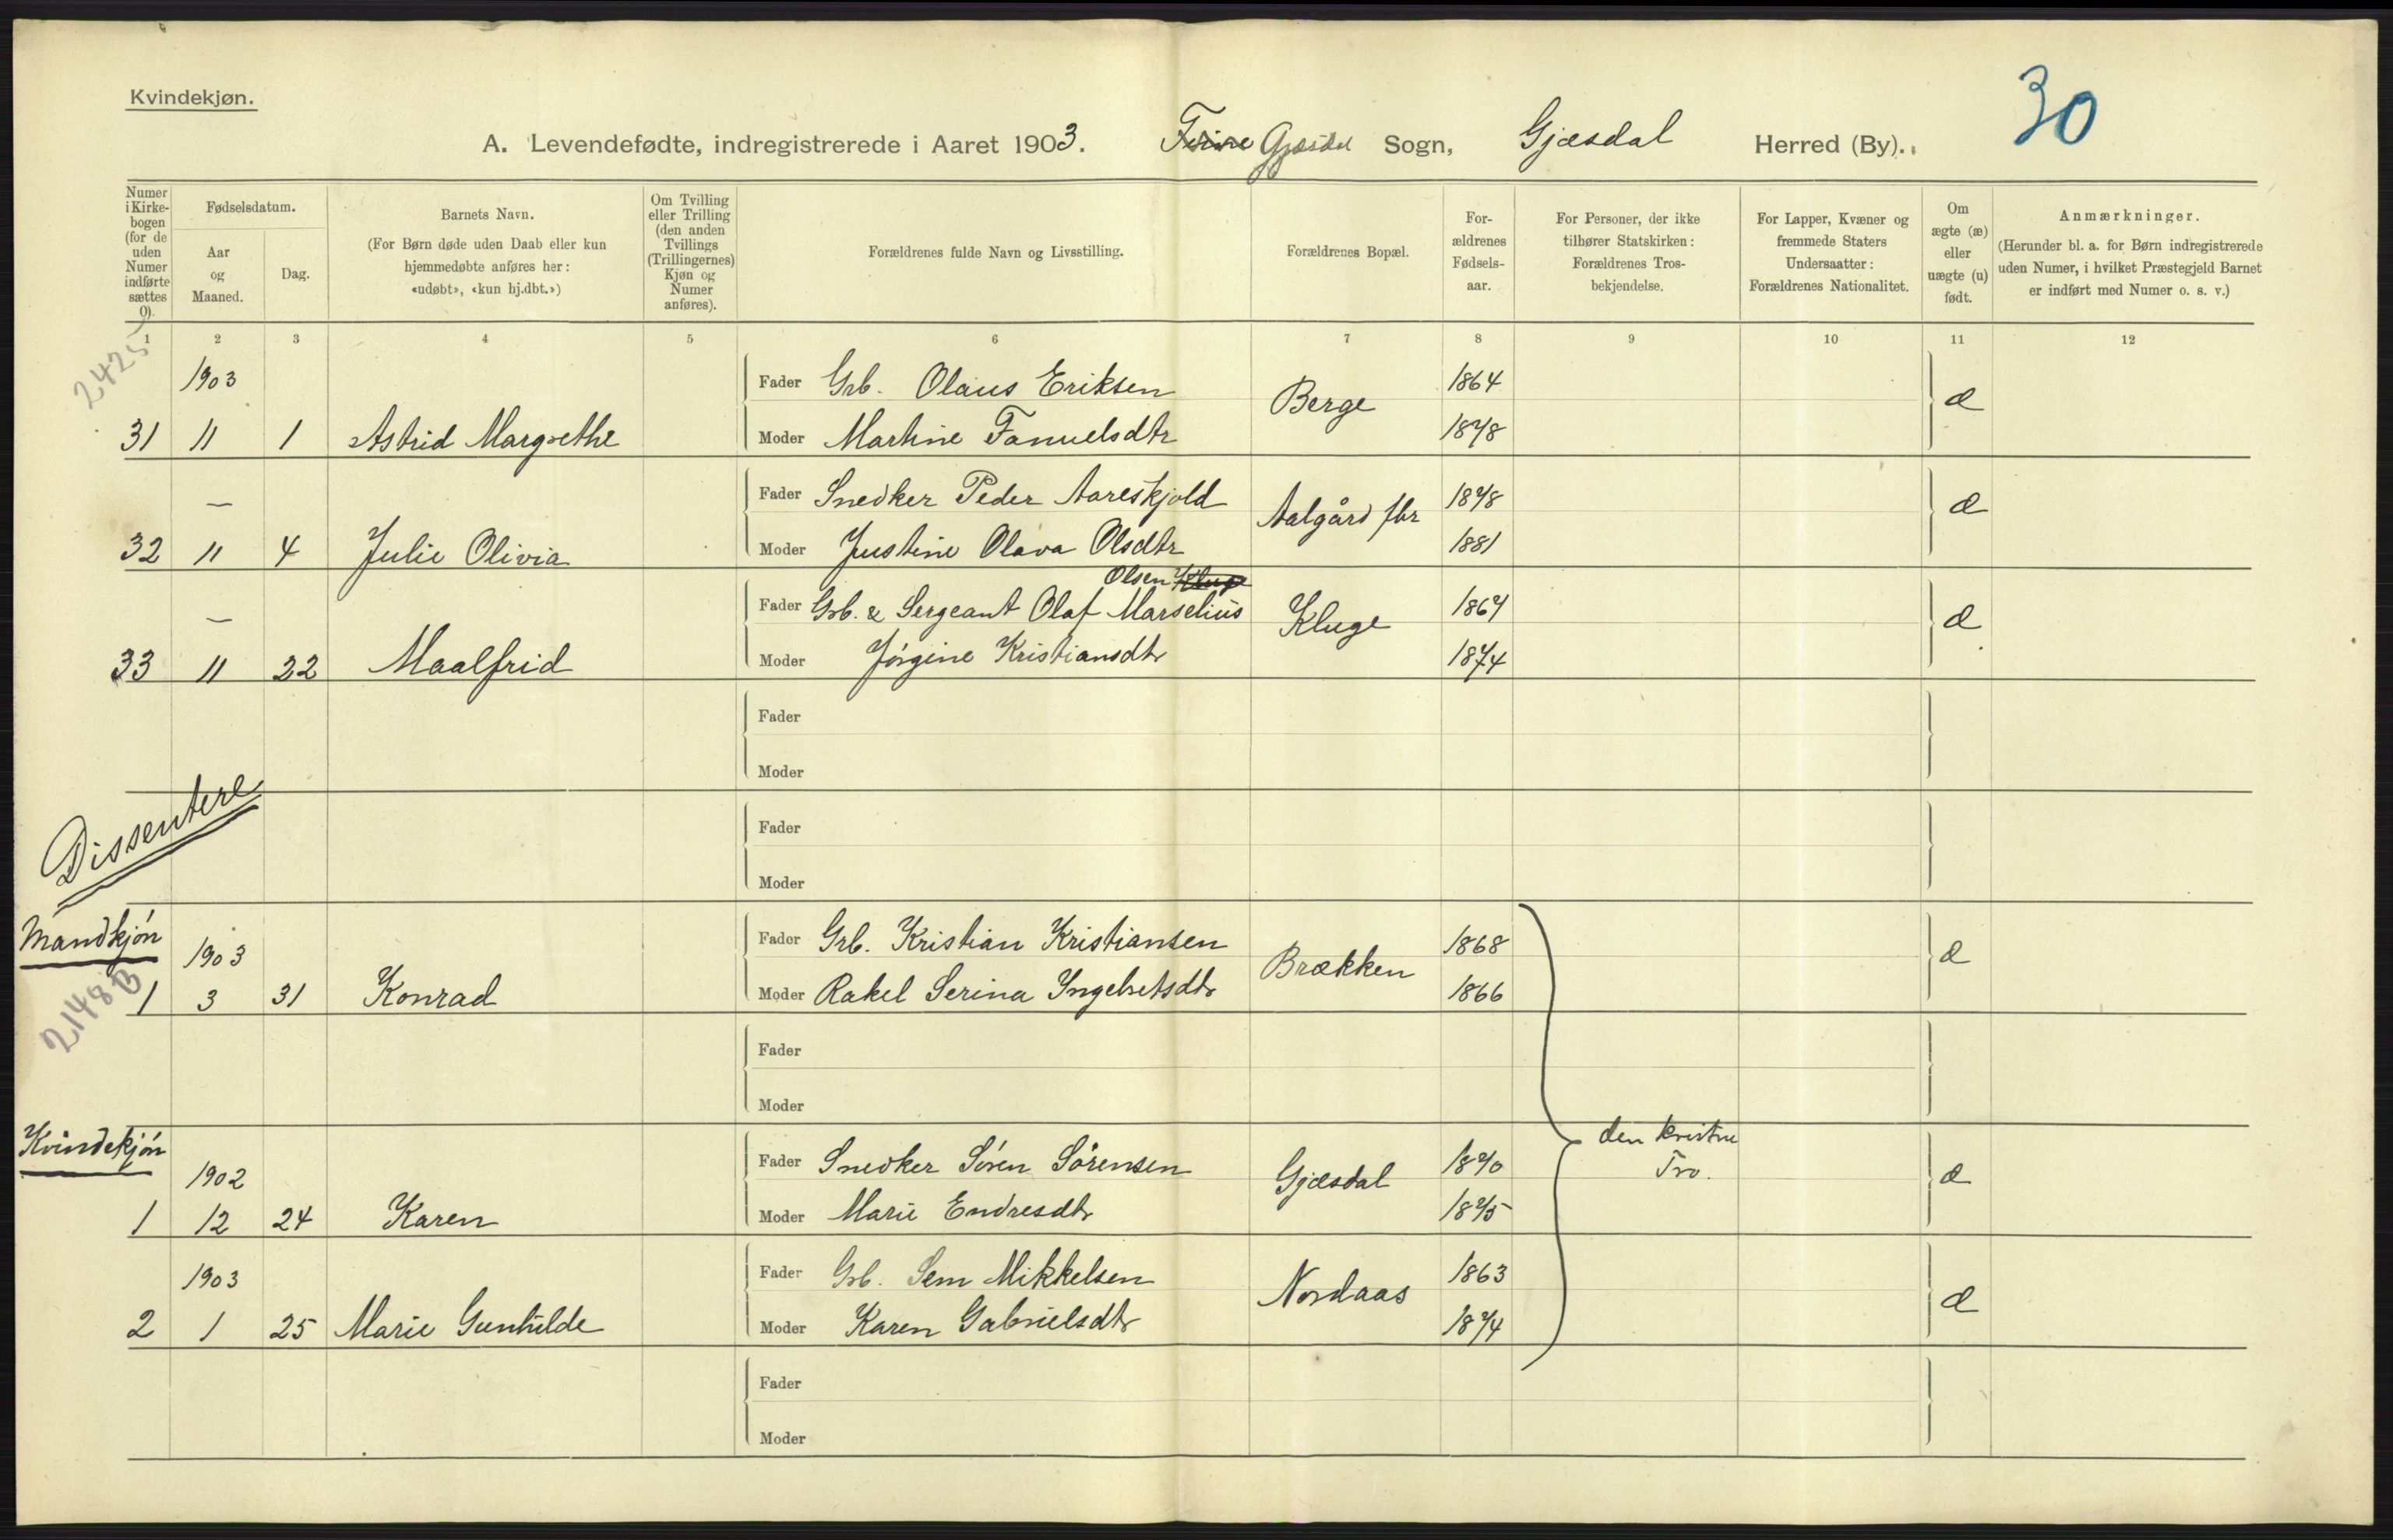 Kvindekjøn.
30
A. Levendefødte, indregistrerede i Aaret 1903. Gjæsdal Sogn, Gjæsdal Herred (By).
Numer i Kirke-bogen (for de uden Numer indførte sættes 0).
Fødselsdatum.
Aar og Maaned.
Dag.
Barnets Navn.
(For Børn døde uden Daab eller kun hjemmedøbte anføres her: «udøbt», «kun hj.dbt.»)
Om Tvilling eller Trilling (den anden Tvillings (Trillingernes) Kjøn og Numer anføres).
Forældrenes fulde Navn og Livsstilling.
Forældrenes Bopæl.
For-ældrenes Fødsels-aar.
For Personer, der ikke tilhører Statskirken: Forældrenes Tros-bekjendelse.
For Lapper, Kvæner og fremmede Staters Undersaatter: Forældrenes Nationalitet.
Om ægte (æ) eller uægte (u) født.
Anmærkninger.
(Herunder bl. a. for Børn indregistrerede uden Numer, i hvilket Præstegjeld Barnet er indført med Numer o. s. v.)
1 2 3 4 5 6 7 8 9 10 11 12
2425
1903 Fader Grb. Olaus Eriksen Berge 1864 æ
31 11 1 Astrid Margrethe Moder Martine Fanuelsdtr 1878
— Fader Snedker Peder Aareskjold Aalgård fbr 1878 æ
32 11 4 Julie Olivia Moder Justine Olava Olsdtr 1881
Olsen Kluge
— Fader Grb. & Sergeant Olaf Marselius Kluge 1867 æ
33 11 22 Maalfrid Moder Jørgine Kristiansdtr 1874
Fader
Moder
Dissentere
Fader
Moder
Mandkjøn
1903 Fader Grb. Kristian Kristiansen Brækken 1868 æ
1 3 31 Konrad Moder Rakel Serina Ingebretsdtr 1866
2148 B
Fader
Moder
Kvindekjøn
den kristne
1902 Fader Snedker Søren Sørensen Gjæsdal 1870 Tro. æ
1 12 24 Karen Moder Marie Endresdtr 1875
1903 Fader Grb. Sem Mikkelsen Nordaas 1863 æ
2 1 25 Marie Gunhilde Moder Karen Gabrielsdtr 1874
Fader
Moder